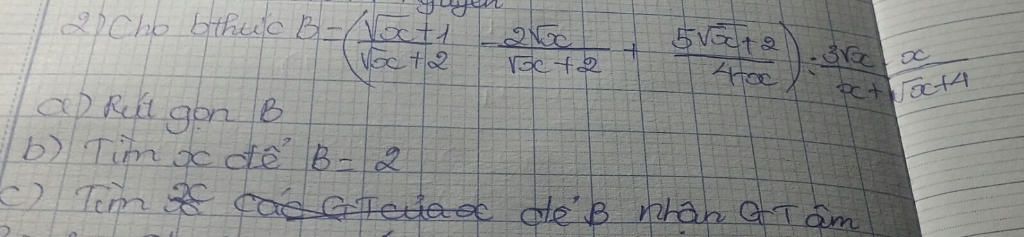 2) Cho bthức B = ( (√x+1)/(√x+2) - (2√x)/(√x+2) + (5√x+2)/(4-x) ) : (3√x-x)/(x+√x+4)
a) Rút gọn B
b) Tìm x để B = 2
c) Tìm x để B nhận GT âm